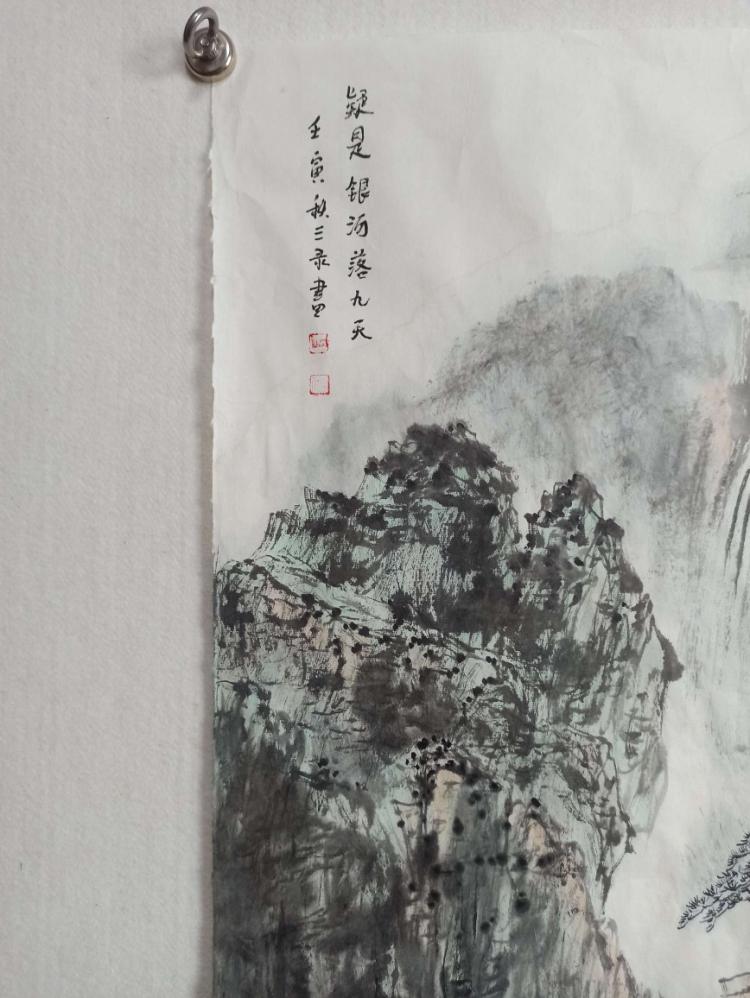 疑是银河落九天
壬寅秋三录画